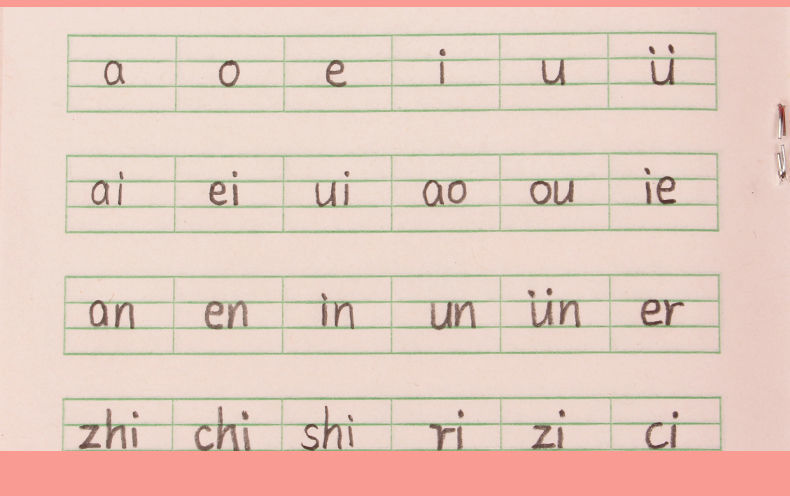 a o e i u ü
ai ei ui ao ou ie
an en in un ün er
zhi chi shi ri zi ci